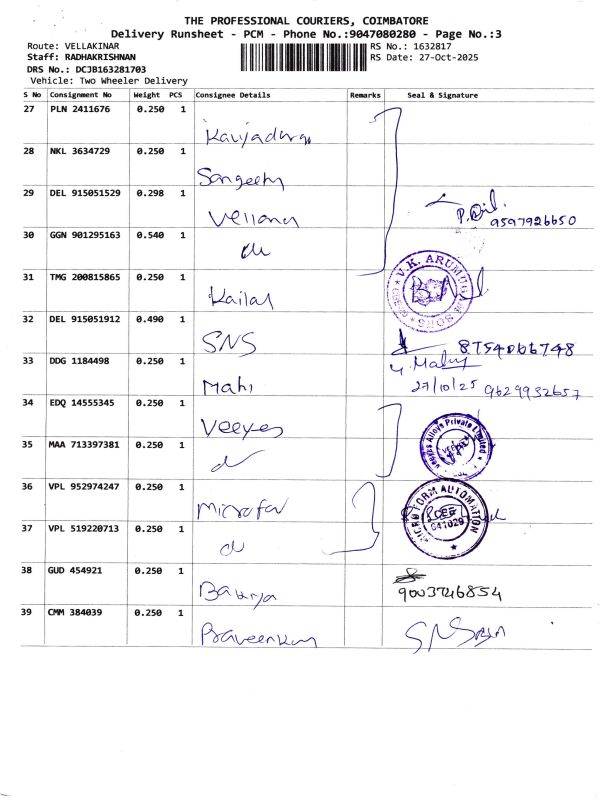 THE PROFESSIONAL COURIERS, COIMBATORE
Delivery Runsheet - PCM - Phone No.:9047080280 - Page No.:3
Route: VELLAKINAR
RS No.: 1632817
Staff: RADHAKRISHNAN
RS Date: 27-Oct-2025
DRS No.: DCJB163281703
Vehicle: Two Wheeler Delivery
S No Consignment No Weight PCS Consignee Details Remarks Seal & Signature
27 PLN 2411676 0.250 1
28 NKL 3634729 0.250 1
Sangeetha
29 DEL 915051529 0.298 1
9597926650
30 GGN 901295163 0.540 1
V.K. ARUMUGAM SONS
31 TMG 200815865 0.250 1
Kailal
32 DEL 915051912 0.490 1
SNS
8754066748
33 DDG 1184498 0.250 1
Mahi
27/10/25 9629932657
34 EDQ 14555345 0.250 1
Veeyes
Veeyes Alloys Private Limited
35 MAA 713397381 0.250 1
36 VPL 952974247 0.250 1
Microfor
MICRO FORM AUTOMATION
641029
37 VPL 519220713 0.250 1
38 GUD 454921 0.250 1
9003746854
39 CMM 384039 0.250 1
Praveenkum